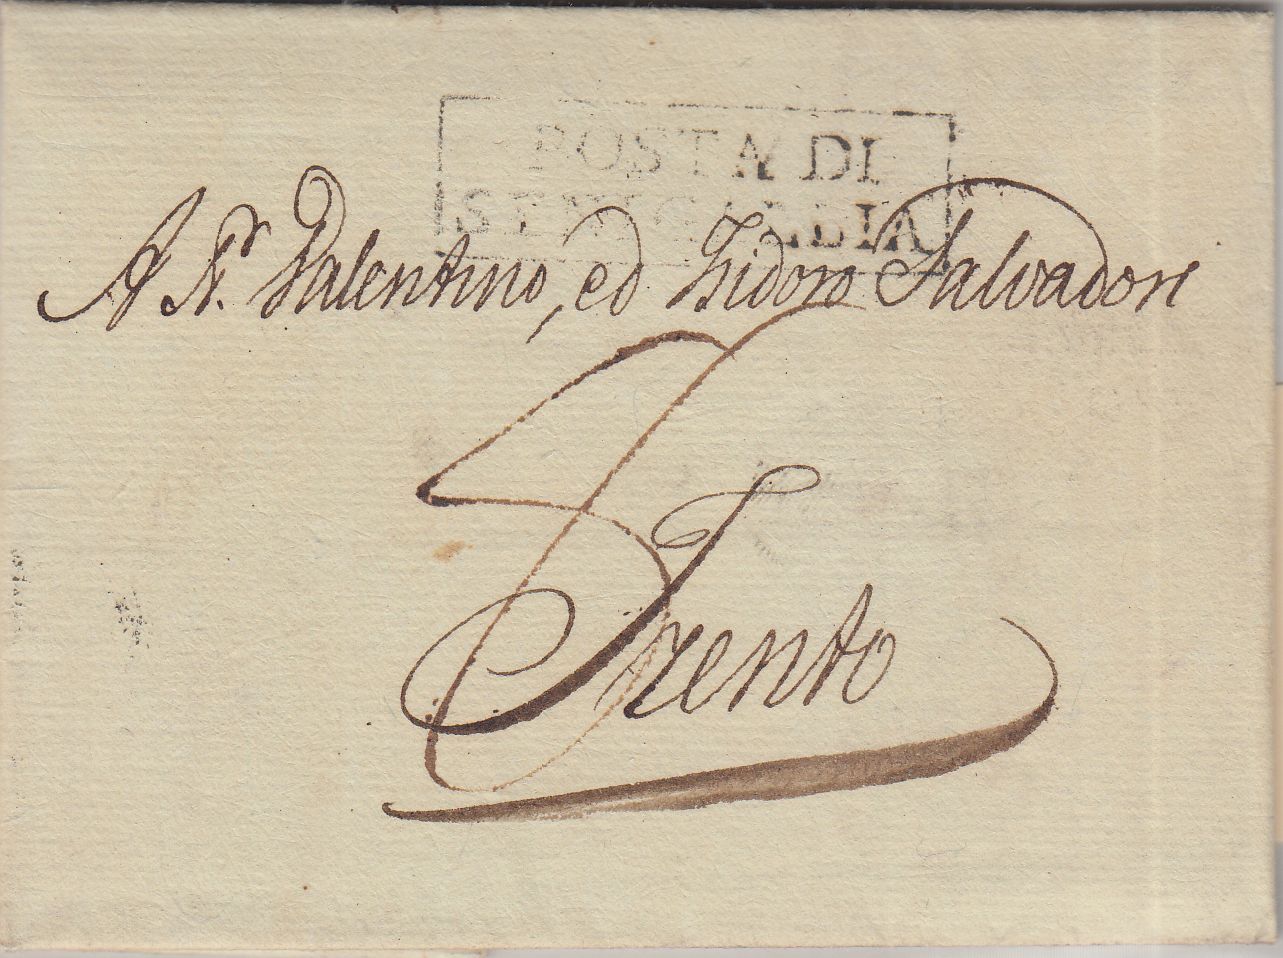 POSTA DI
SENIGALLIA
A Sr. Valentino, ed Isidoro Salvadori
Trento